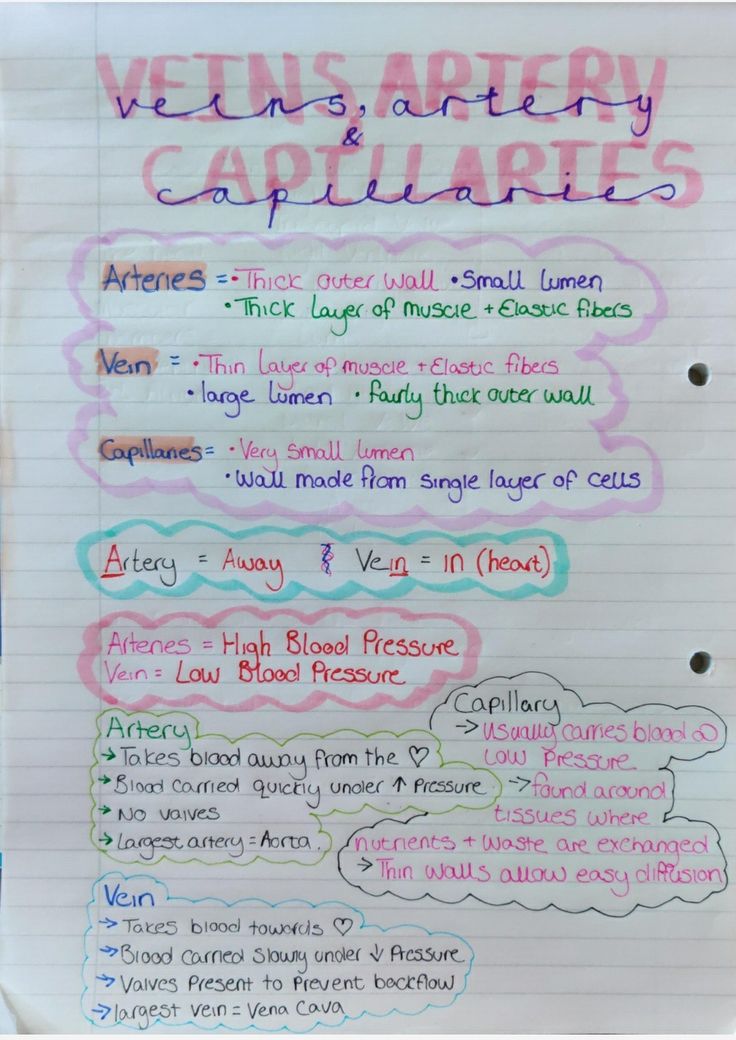 VEINS, ARTERY
veins, artery
&
CAPILLARIES
capillaries
Arteries = • Thick outer wall • Small lumen
• Thick layer of muscle + Elastic fibers
Vein = • Thin layer of muscle + Elastic fibers
• large lumen • fairly thick outer wall
Capillaries = • Very small lumen
• Wall made from single layer of cells
Artery = Away Vein = in (heart)
Arteries = High Blood Pressure
Vein = Low Blood Pressure
Artery
→ Takes blood away from the ♡
→ Blood carried quickly under ↑ Pressure
→ No valves
→ Largest artery = Aorta.
Capillary
→ usually carries blood @
low pressure
→ found around
tissues where
nutrients + waste are exchanged
→ Thin walls allow easy diffusion
Vein
→ Takes blood towards ♡
→ Blood carried slowly under ↓ Pressure
→ Valves Present to Prevent backflow
→ largest vein = Vena Cava